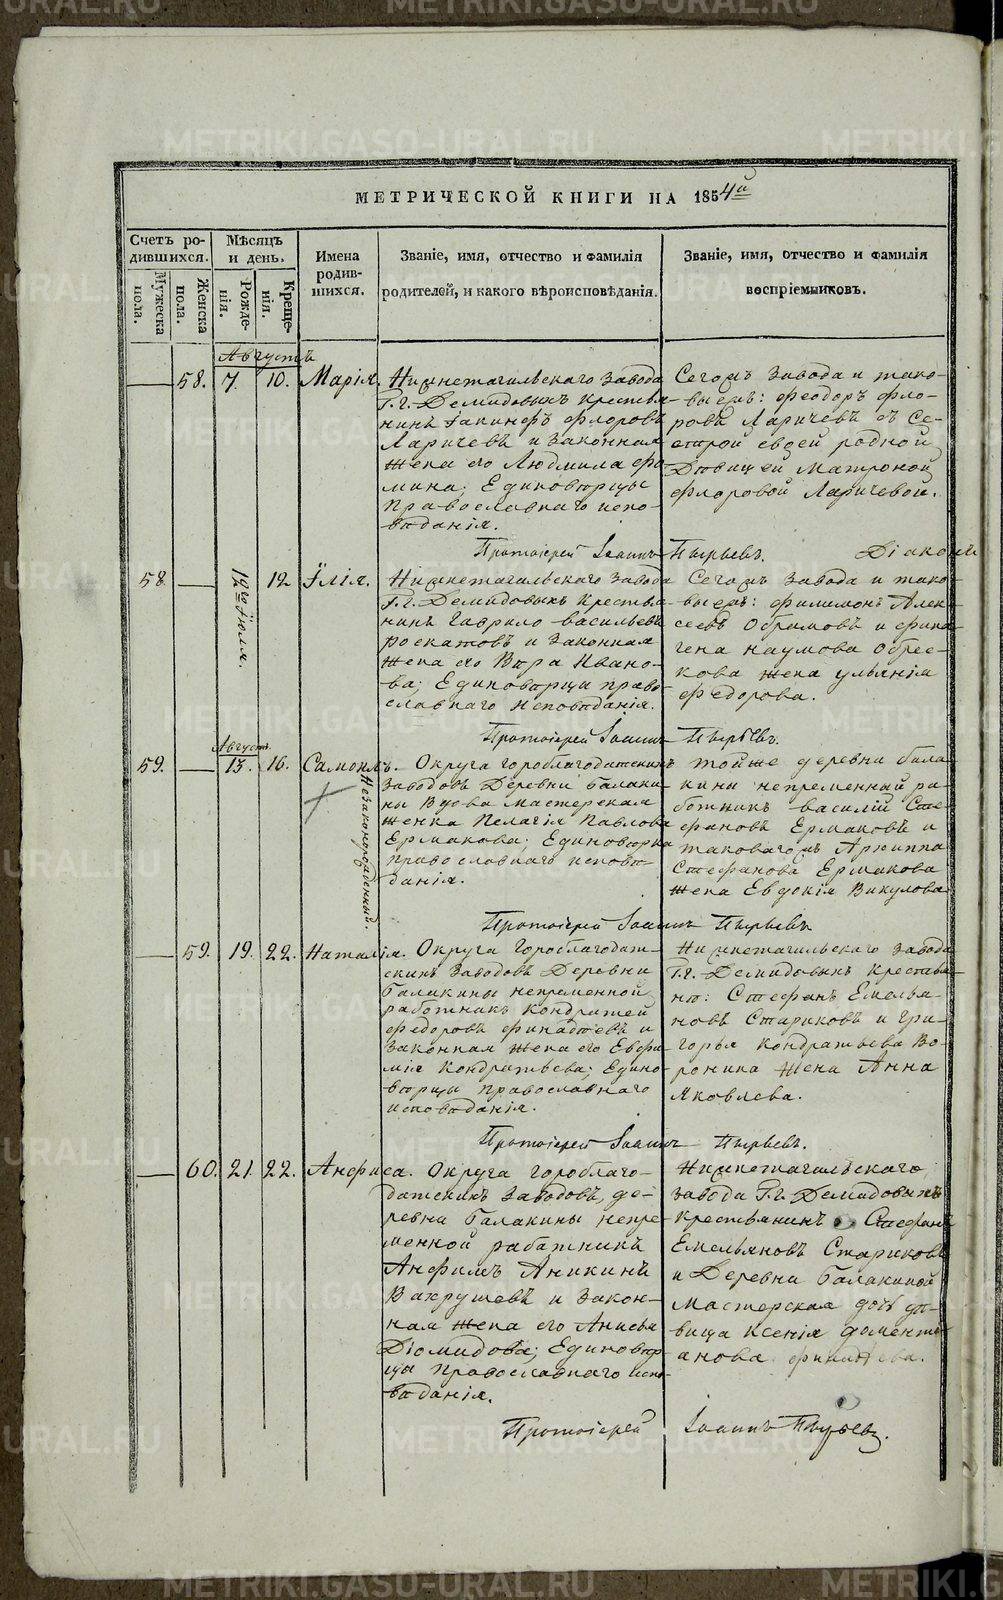 METRIKI.GASO-URAL.RU
МЕТРИЧЕСКОЙ КНИГИ НА 1854й
Счетъ ро-
дившихся.
Мѣсяцъ
и день.
Имена
родив-
шихся.
Званіе, имя, отчество и фамилія
родителей, и какого вѣроисповѣданія.
Званіе, имя, отчество и фамилія
воспріемниковъ.
Мужеска
пола.
Женска
пола.
Рожде-
нія.
Креще-
нія.
Августъ
58. 7. 10. Марія.
Нижнетагильскаго завода
Г.г. Демидовыхъ крестья-
нинъ Іакинфъ Флоровъ
Ларичевъ и законная
жена его Людмила Фо
мина; Единоверцы
Православнаго испо-
вѣданія.
Сегожъ завода и тако-
выежъ: Феодоръ Фло-
ровъ Ларичевъ съ Се-
строй своей родной
Дѣвицей Матроной
Флоровой Ларичевой.
Протоіерей Іоаннъ Пырьевъ. Діаконъ
58 12го Іюля. 12 Илія.
Нижнетагильскаго завода
Г.г. Демидовыхъ крестья-
нинъ Гаврило Васильевъ
и законная
жена его Вѣра Ивано-
ва; Единоверцы право-
славнаго исповѣданія.
Сегожъ завода и тако-
выежъ: Филимонъ Алек-
сеевъ и
Наумова
кова жена Ульянія
Федорова.
Протоіерей Іоаннъ Пырьевъ.
Августъ
59. 13. 16. Самоилъ.
Незаконорожденный.
Округа Гороблагодатскихъ
заводовъ Деревни Балаки-
ны Вдова мастерская
женка Пелагія Павлова
Ермакова; Единоверка
православнаго исповѣ-
данія.
тойже деревни Бала
кины непременный ра-
ботникъ Василій Сте-
фановъ Ермаковъ и
таковагожъ Архиппа
Стефанова Ермакова
жена Евдокія Викулова
Протоіерей Іоаннъ Пырьевъ
59. 19. 22. Наталія.
Округа Гороблагодат-
скихъ заводовъ Деревни
Балакины непременной
работникъ Кондратей
Федоровъ и
законная жена его Евфи-
мія Кондратьева; Едино-
верцы православнаго
исповѣданія.
Нижнетагильскаго завода
Г.г. Демидовыхъ крестья-
не: Стефанъ Емелья-
новъ Стариковъ и Гри-
горья Кондратьева Во-
ронина жена Анна
Яковлева.
Протоіерей Іоаннъ Пырьевъ.
60. 21. 22. Анфиса.
Округа Гороблаго-
датскихъ заводовъ, де-
ревни Балакины непре-
менной работникъ
Анфимъ Аникинъ
Вахрушевъ и закон-
ная жена его Анисья
Діомидова; Единовер-
цы православнаго испо-
вѣданія.
Нижнетагильскаго
завода Г.г. Демидовыхъ
крестьянинъ Стефанъ
Емельяновъ Стариковъ
и Деревни Балакиной
Мастерская дочь дѣ-
вица Ксенія Доменті-
анова
Протоіерей Іоаннъ Пырьевъ.